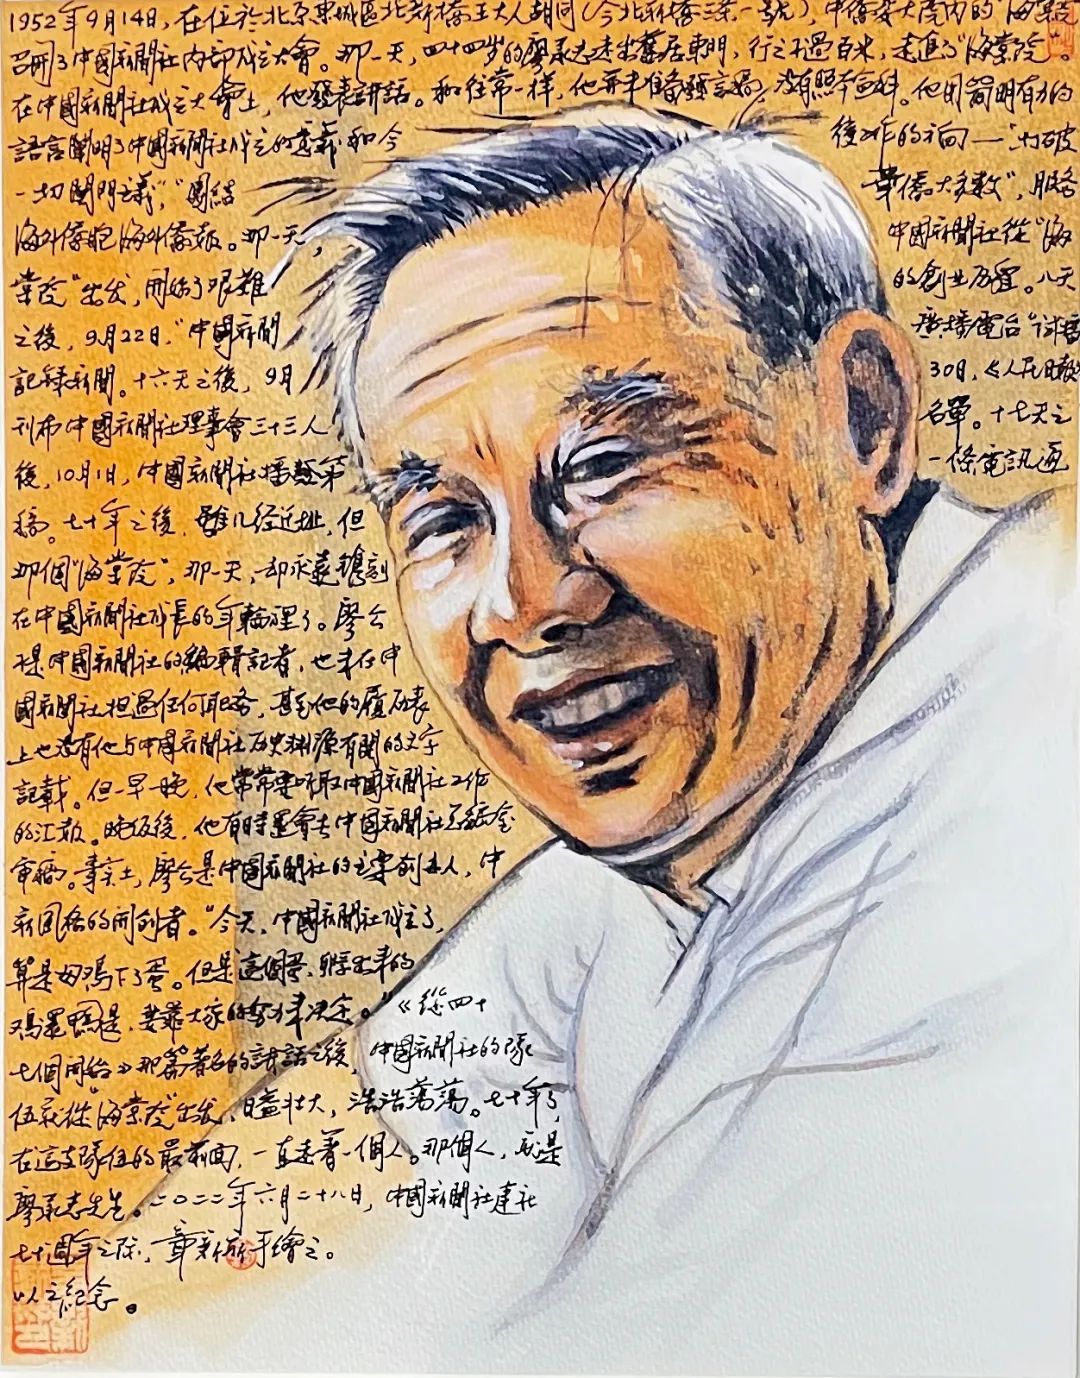 1952年9月14日，在位於北京東城區北新橋王大人胡同（今北新橋三条一號），中僑委大院内的“海棠院
召開了中國新聞社内部成立大會。那一天，四十四岁的廖承志走出舊居東門，行之不過百米，走進了“海棠院”。
在中國新聞社成立大會上，他發表講話。和往常一样，他并未准备發言稿，没有照本宣科。他用简明有力的
語言闡明了中國新聞社成立的意義和今後工作的方向——“打破
一切關門主義”，“團結華僑大多数”，服务
海外僑胞海外僑報。那一天，中國新聞社從“海
棠院”出发，開始了艰難的創业历程。八天
之後，9月22日，“中國新聞廣播電台”试播
記録新聞。十六天之後，9月30日，《人民日報》
刊布中國新聞社理事會三十三人名單。十七天之
後，10月1日，中國新聞社播發第一條電訊通
稿。七十年之後，雖几经迁址，但
那個“海棠院”，那一天，却永遠鐫刻
在中國新聞社成長的年輪裡了。廖公
不是中國新聞社的編輯記者，也未在中
國新聞社担過任何职务，甚至他的履历表
上也没有他与中國新聞社历史渊源有關的文字
記載。但一早一晚，他常常要听取中國新聞社工作
的汇報。晚饭後，他有時還會去中國新聞社編室
審稿。事実上，廖公是中國新聞社的主要創办人，中
新風格的開創者。“今天，中國新聞社成立了，
算是母鸡下了蛋。但是這個蛋，孵出来的
鸡還鸭是，要靠大家的努力来决定。”《從四十
七個開始》那篇著名的講話之後，中國新聞社的隊
伍就從“海棠院”出发，日益壮大，浩浩荡荡。七十年了，
在這支隊伍的最前面，一直走著一個人。那個人，就是
廖承志先生。二〇二二年六月二十八日，中國新聞社建社
七十週年之际，章新新手繪之。
以之紀念。